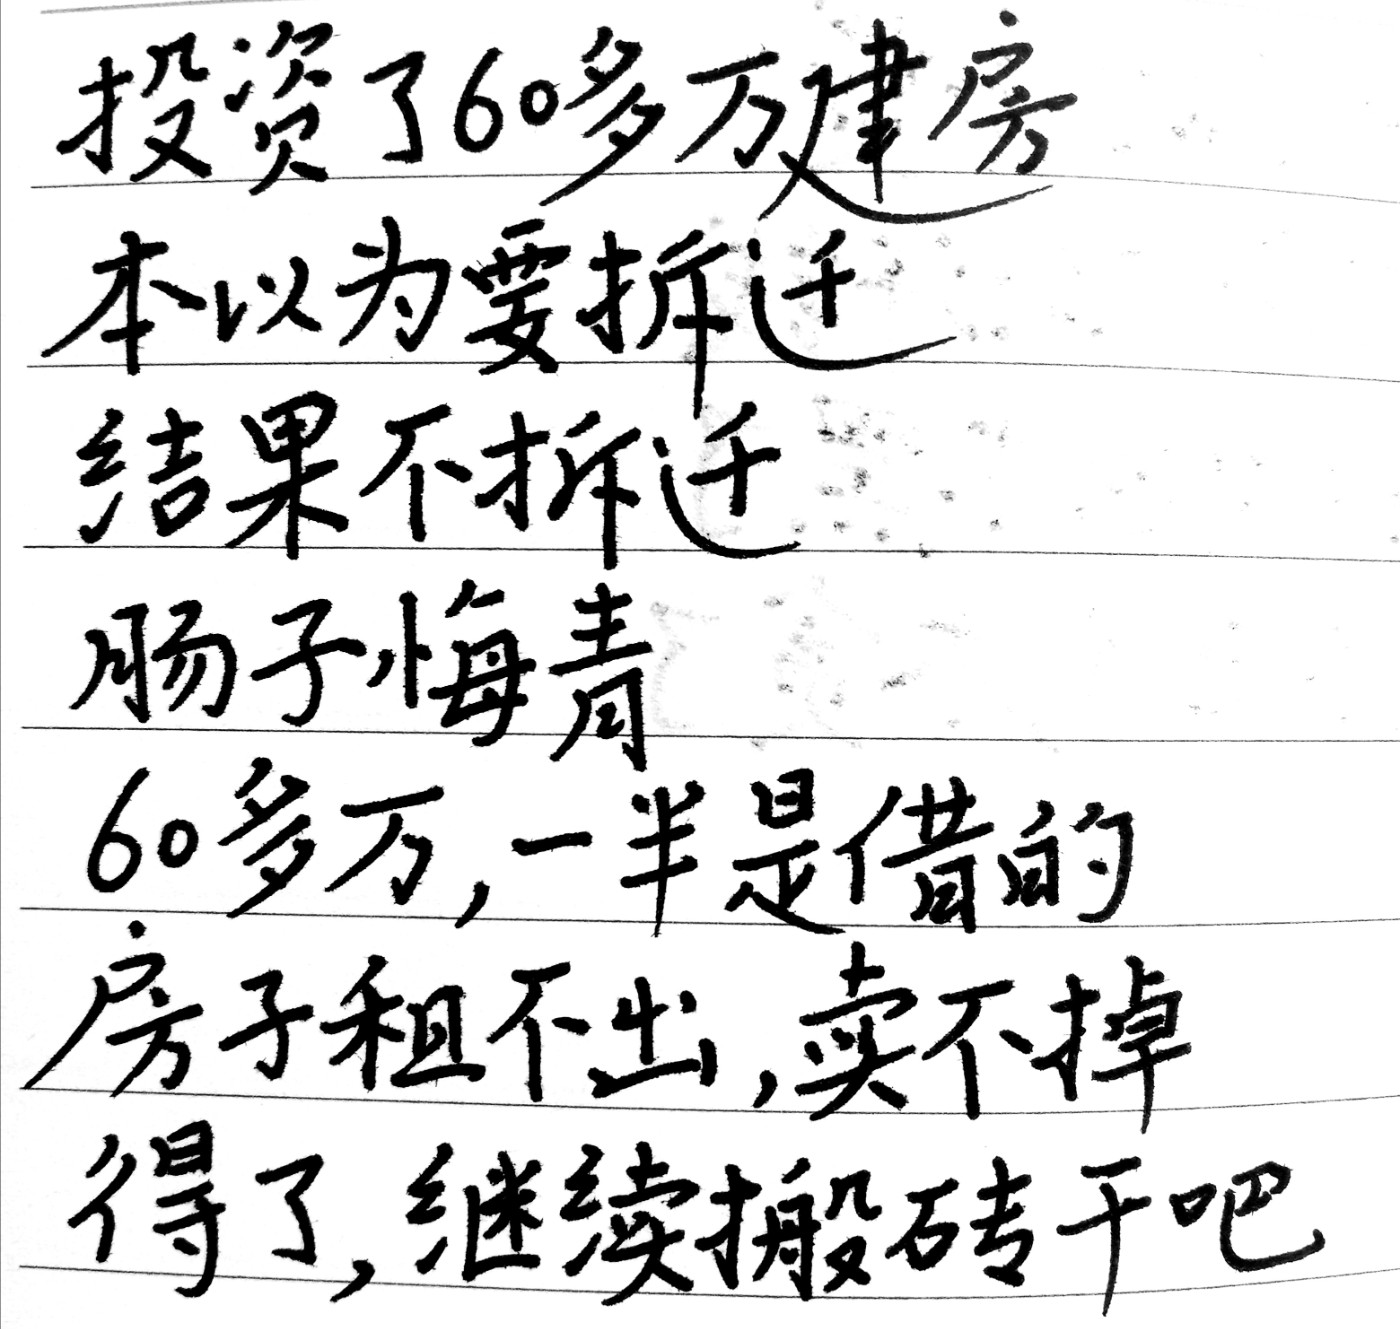 投资了60多万建房
本以为要拆迁
结果不拆迁
肠子悔青
60多万,一半是借的
房子租不出,卖不掉
得了,继续搬砖干吧